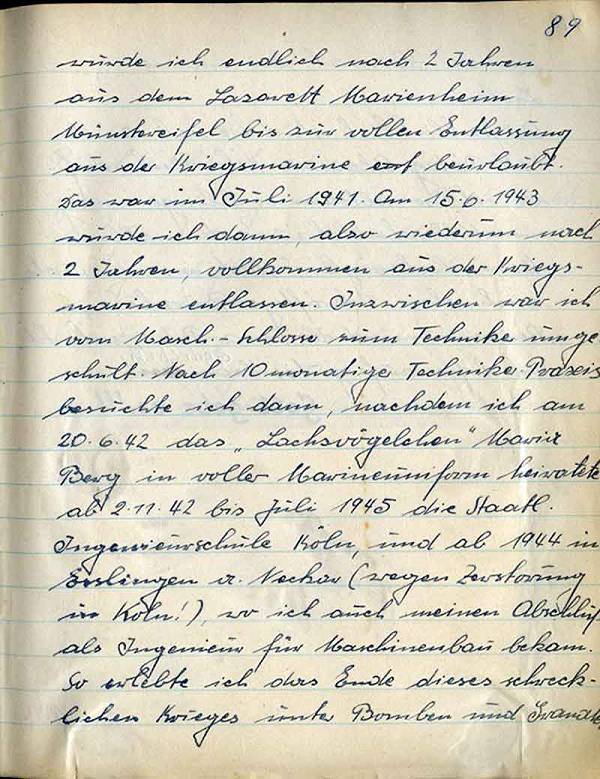 89
wurde ich endlich nach 2 Jahren
aus dem Lazarett Marienheim
Münstereifel bis zur vollen Entlassung
aus der Kriegsmarine beurlaubt.
Das war im Juli 1941. Am 15.6.1943
wurde ich dann, also wiederum nach
2 Jahren, vollkommen aus der Kriegs-
marine entlassen. Inzwischen war ich
vom Masch.-Schlosser zum Techniker umge
schult. Nach 10 monatiger Techniker-Praxis
besuchte ich dann, nachdem ich am
20.6.42 das „Lachsvögelchen" Maria
Berg in voller Marineuniform heiratete
ab 2.11.42 bis Juli 1945 die Staatl.
Ingenieurschule Köln, und ab 1944 in
Esslingen a. Neckar (wegen Zerstörung
in Köln!), wo ich auch meinen Abschluß
als Ingenieur für Maschinenbau bekam.
So erlebte ich das Ende dieses schreck-
lichen Krieges unter Bomben und